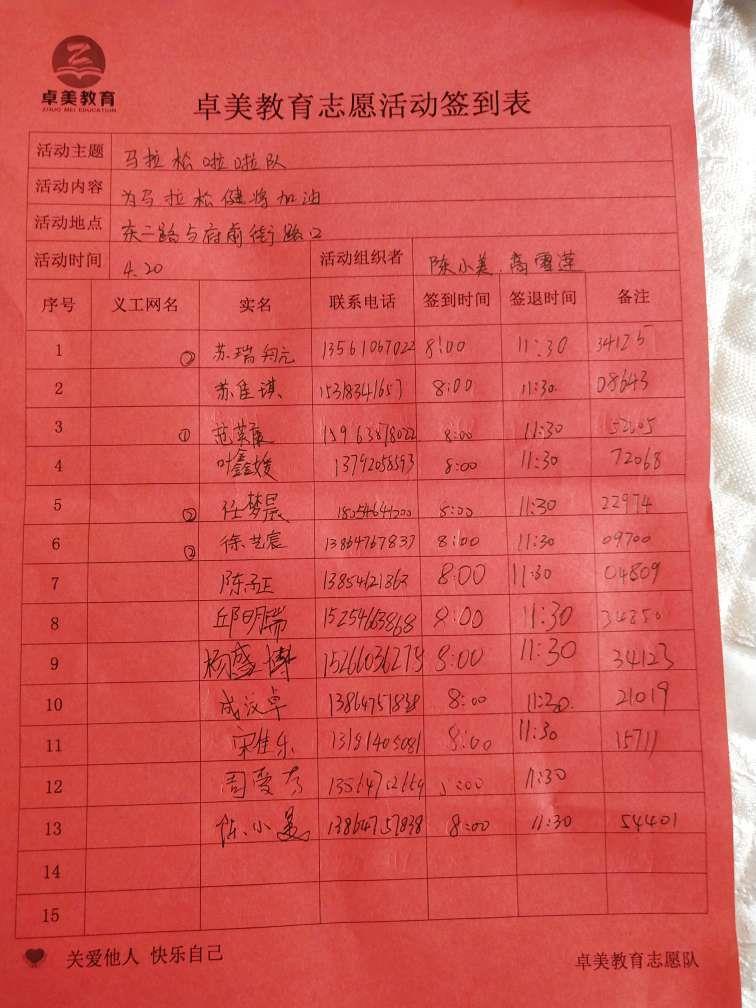 卓美教育
ZHUO MEI EDUCATION
卓美教育志愿活动签到表
活动主题 马拉松啦啦队
活动内容 为马拉松健将加油
活动地点 东二路与府前街路口
活动时间 4.20 活动组织者 陈小美.高雪莲
序号 义工网名 实名 联系电话 签到时间 签退时间 备注
1 ② 苏瑞 13561067022 8:00 11:30 34125
2 苏佳琪 15318341657 8:00 11:30 08643
3 ① 15963878022 8:00 11:30
4 叶鑫媛 13792058593 8:00 11:30 72068
5 ② 任梦晨 18054641200 8:00 11:30 22974
6 ② 徐艺宸 13864767837 8:00 11:30 09700
7 陈孟正 13854621863 8:00 11:30 04809
8 邱明瑞 15254663868 8:00 11:30 34850
9 杨盛博 15266036279 8:00 11:30 34123
10 成汉卓 13864757838 8:00 11:30. 21019
11 宋佳乐 13181405081 8:00 11:30 15711
12 周爱 :00 11:30
13 陈小美 13864757838 8:00 11:30 54401
14
15
关爱他人 快乐自己
卓美教育志愿队